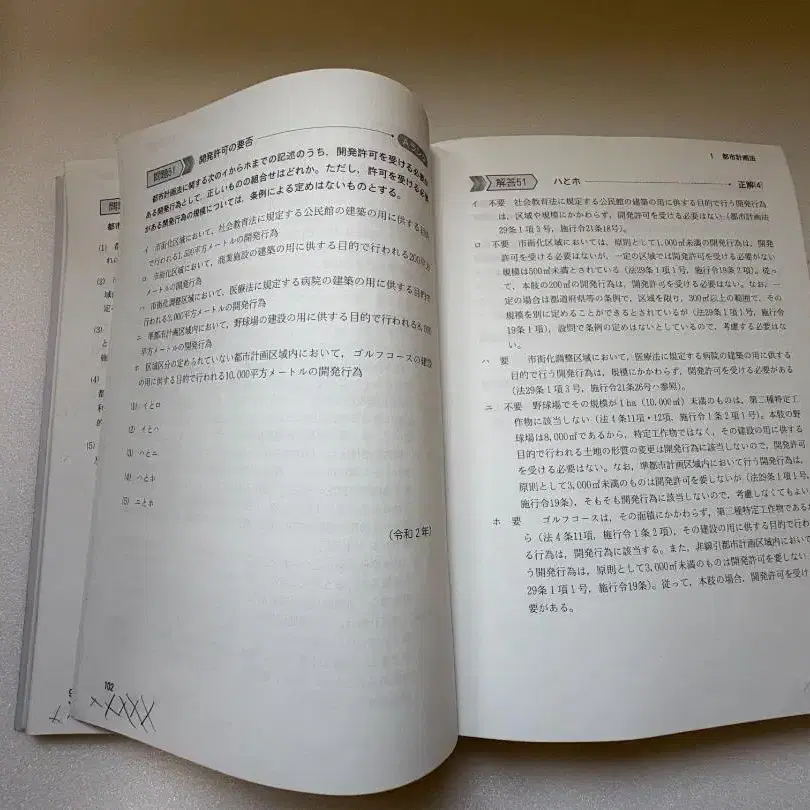 問題51
開発許可の要否
Aランク
都市計画法に関する次のイからホまでの記述のうち，開発許可を受ける必要が
ある開発行為として，正しいものの組合せはどれか。ただし，許可を受ける必要
がある開発行為の規模については，条例による定めはないものとする。
イ 市街化区域において，社会教育法に規定する公民館の建築の用に供する目的
で行われる1,500平方メートルの開発行為
ロ 市街化区域において，商業施設の建築の用に供する目的で行われる200平方
メートルの開発行為
ハ 市街化調整区域において，医療法に規定する病院の建築の用に供する目的で
行われる2,000平方メートルの開発行為
ニ 準都市計画区域内において，野球場の建設の用に供する目的で行われる8,000
平方メートルの開発行為
ホ 区域区分の定められていない都市計画区域内において，ゴルフコースの建設
の用に供する目的で行われる10,000平方メートルの開発行為
(1) イとロ
(2) イとハ
(3) ハとニ
(4) ハとホ
(5) ニとホ
（令和2年）
102
1 都市計画法
解答51
ハとホ
正解(4)
イ 不要 社会教育法に規定する公民館の建築の用に供する目的で行う開発行為
は，区域や規模にかかわらず，開発許可を受ける必要はない（都市計画法
29条1項3号，施行令21条18号）。
ロ 不要 市街化区域においては，原則として1,000㎡未満の開発行為は，開発
許可を受ける必要はないが，一定の区域では開発許可を受ける必要がない
規模は500㎡未満とされている（法29条1項1号，施行令19条2項）。従っ
て，本肢の200㎡の開発行為は，開発許可を受ける必要はない。なお，一
定の場合は都道府県等の条例で，区域を限り，300㎡以上の範囲で，その
規模を別に定めることができるとされているが（法29条1項1号，施行令
19条1項），設問で条例の定めはないとしているので，考慮する必要はな
い。
ハ 要 市街化調整区域において，医療法に規定する病院の建築の用に供する
目的で行う開発行為は，規模にかかわらず，開発許可を受ける必要がある
（法29条1項3号，施行令21条26号ハ参照）。
ニ 不要 野球場でその規模が1ha（10,000㎡）未満のものは，第二種特定工
作物に該当しない（法4条11項・12項，施行令1条2項1号）。本肢の野
球場は8,000㎡であるから，特定工作物ではなく，その建設の用に供する
目的で行われる土地の形質の変更は開発行為に該当しないので，開発許可
を受ける必要はない。なお，準都市計画区域内において行う開発行為は，
原則として3,000㎡未満のものは開発許可を要しないが（法29条1項1号，
施行令19条），そもそも開発行為に該当しないので，考慮しなくてもよい
ホ 要 ゴルフコースは，その面積にかかわらず，第二種特定工作物であるか
ら（法4条11項，施行令1条2項），その建設の用に供する目的で行わ
る行為は，開発行為に該当する。また，非線引都市計画区域内において
う開発行為は，原則として3,000㎡未満のものは開発許可を要しない
29条1項1号，施行令19条）。従って，本肢の場合，開発許可を受け
要がある。